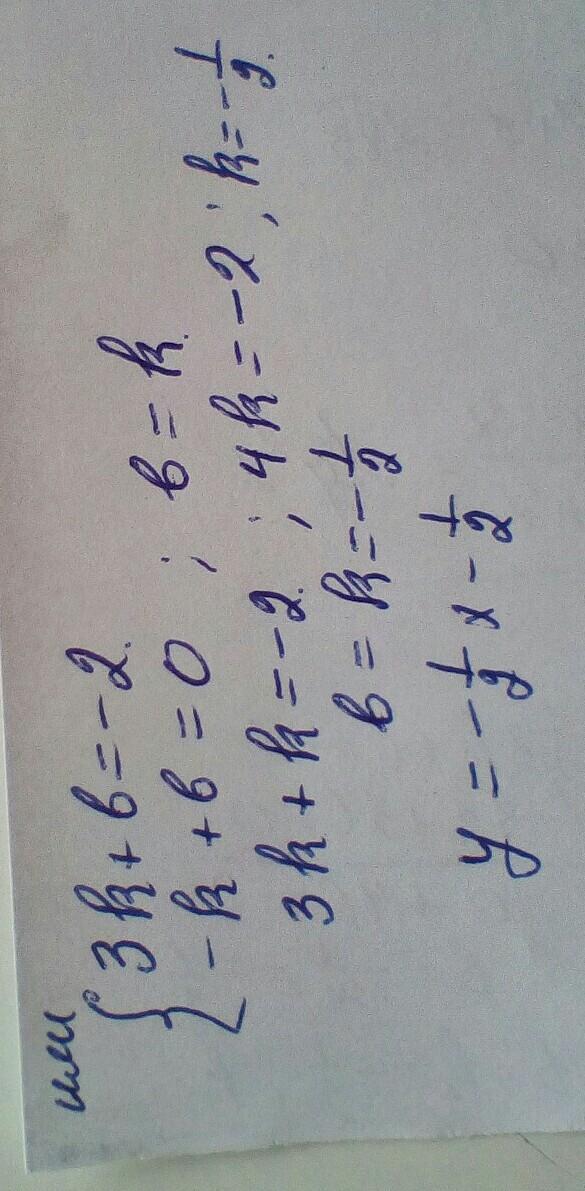 или
{ 3k + b = -2
-k + b = 0 ; b = k
3k + k = -2 ; 4k = -2 ; k = -1/2.
b = k = -1/2
y = -1/2 x - 1/2